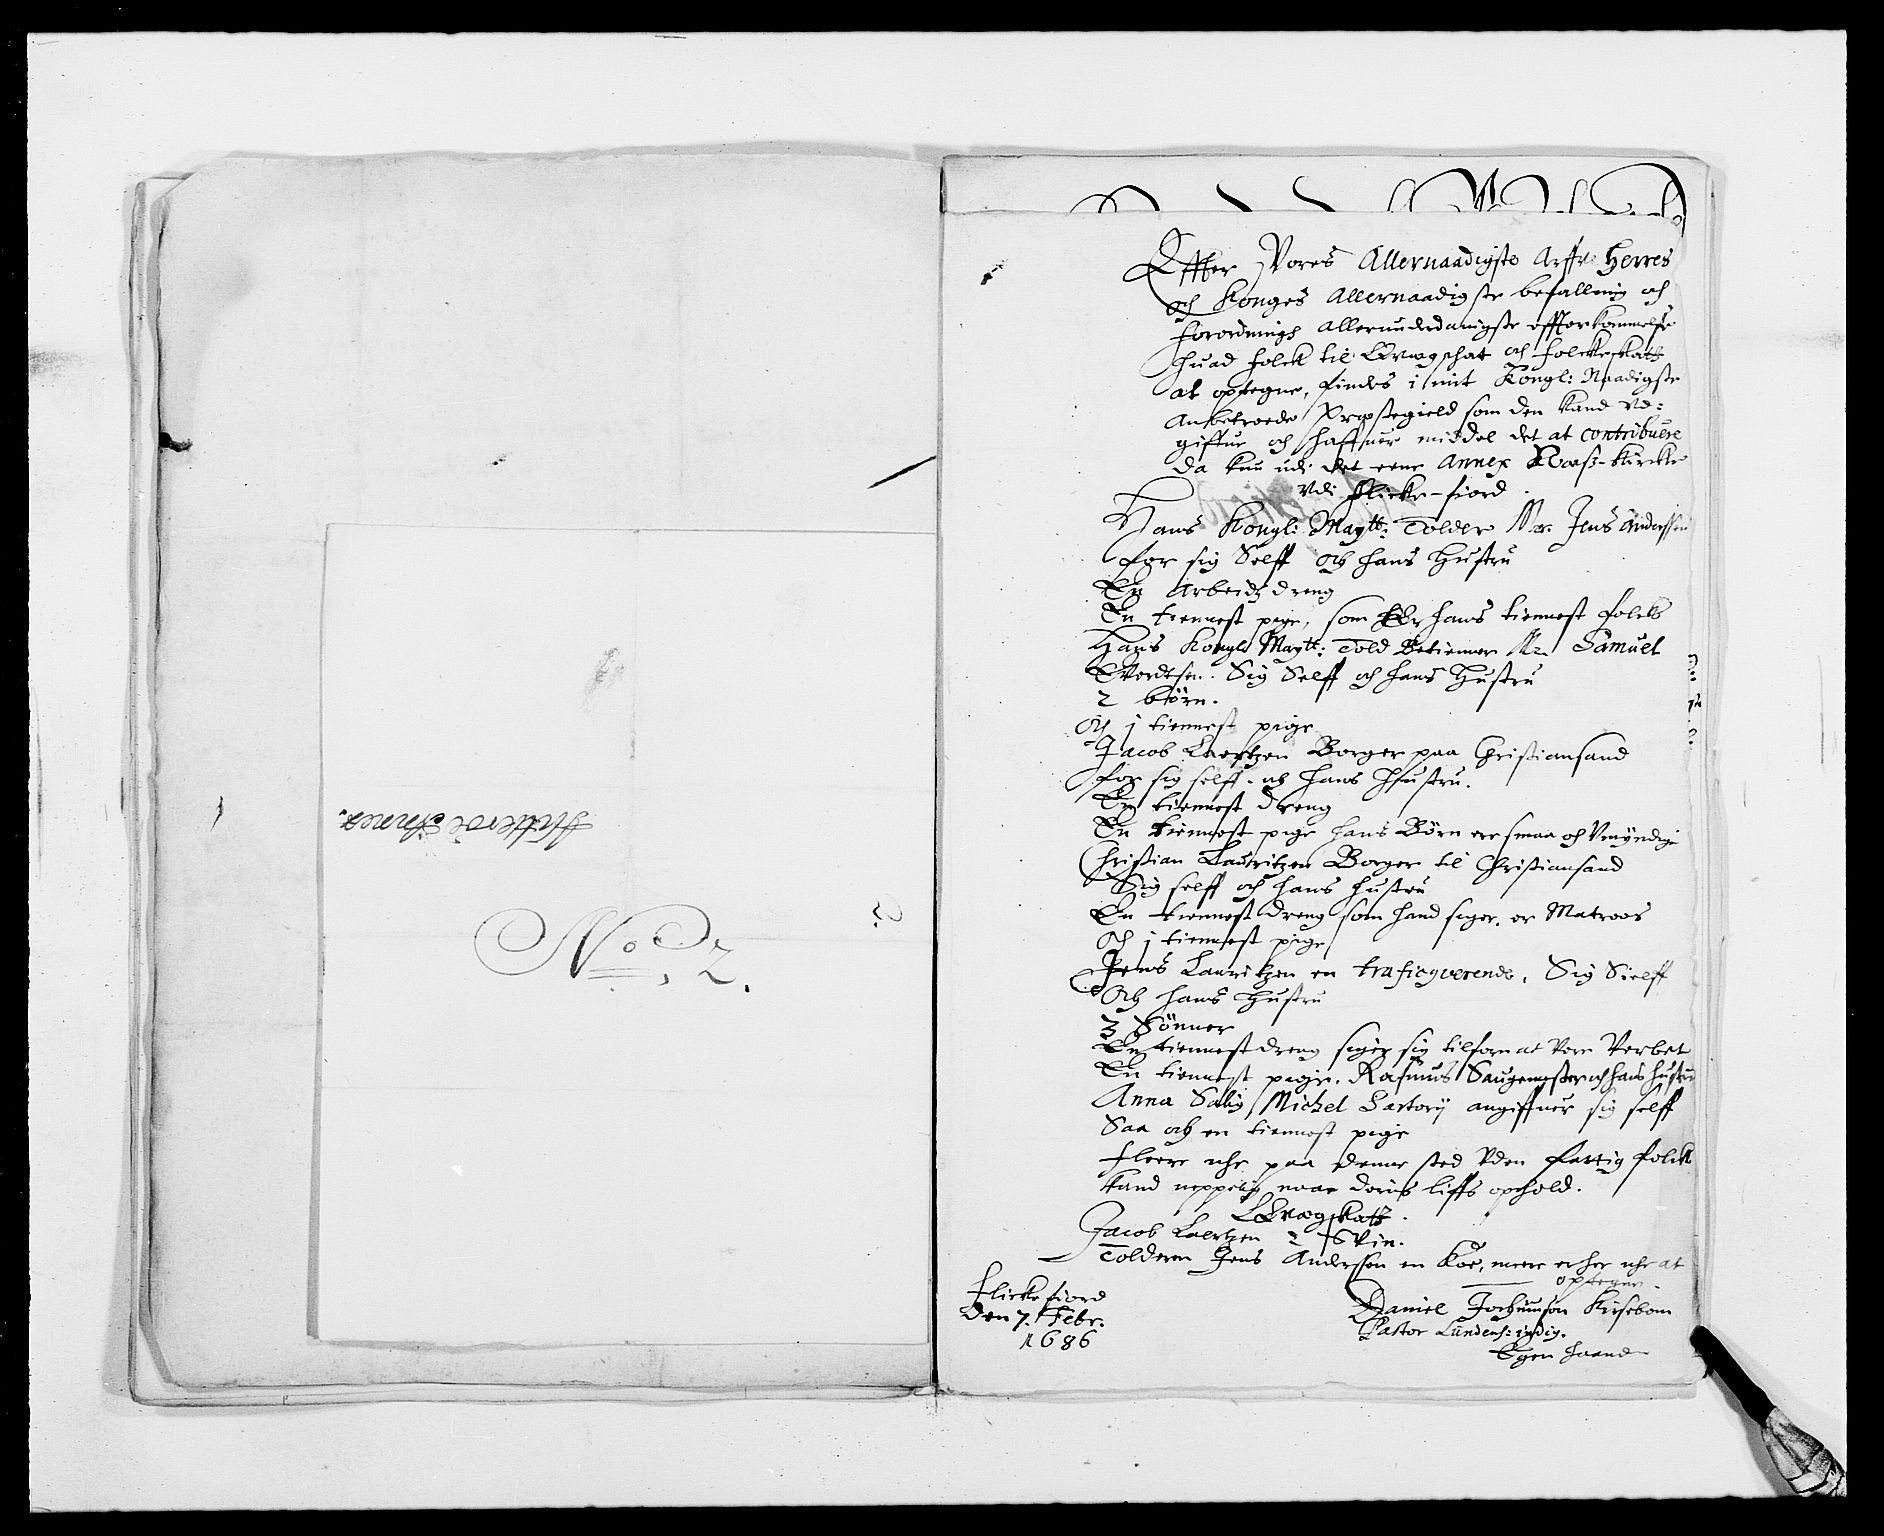 Hitterøe Annex.
No. 2.
2.
Effter Vores Allernaadigste Arffve Herres
och Konges Allernaadigste befalling och
forordnings allerunderdanigste effterkommelse
huad folck til Qvægschat och folckeskatt
at optegne, findes i mit Kongl: Naadigste
Anbetroede Præstegield som den kand vd-
giffue och haffuer middel det at contribuere
da kun udi det eene Annex Næss-Kircke
vdi Flicke-fiord
Hans Kongl: Maytt: Tolder Mr. Jens Anderssen
for sig Selff och hans Hustru
En Arbeidz dreng
En tiennest pige, som er hans tiennest folck
Hans Kongl Maytt: Told Betienner Mr. Samuel
Sig Selff och hans Hustru
2 børn.
Och 1 tiennest pige
Jacob Laertzen Borger paa Christiansand
for sig selff och hans Hustru.
En tiennest dreng
En tiennest pige hans Børn ere smaa och Vmyndige
Christian Lauritzen Borger til Christiansand
Sig selff och hans hustru
En tiennest dreng som hand siger er Matroos
Och 1 tiennest pige
Jens Lauritzen en traficqverende, Sig Sielff
Och hans Hustru
3 Sønner
En tiennest dreng siger sig tilforn at vere Verbet
En tiennest pige. Rasmus och hans hustru
Anna Salig Michel Sartorij angiffuer sig selff
Saa och en tiennest pige
fleere ehr paa denne sted vden fattig folck
kand neppelig naae deris liffs ophold.
Qvægskatt.
Jacob Laertzen 2 Svin.
Tolderen Jens Anderssen en Koe, meere er her ehr at
optegne.
Flickefiord
Den 7. Febr.
1686
Daniel Jochumson Kirsebom
Pastor Lundens: indig.
Egen haand